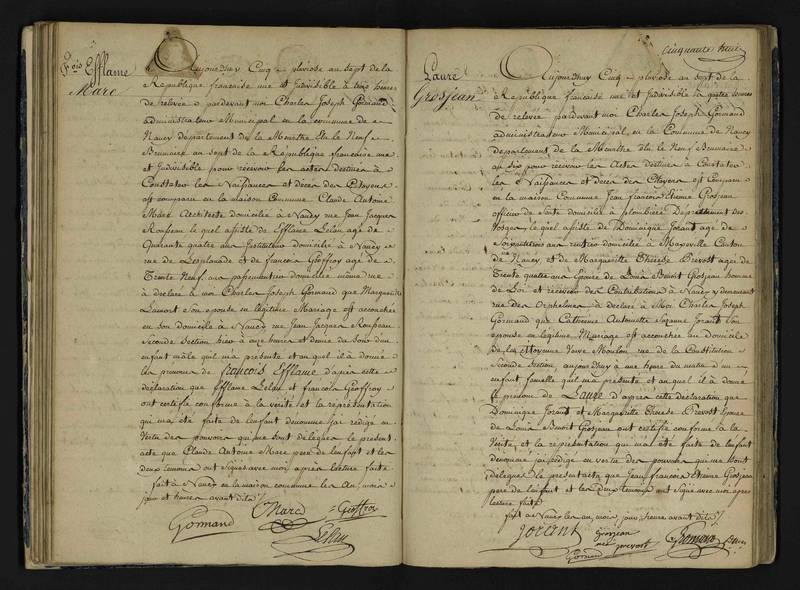 Fois Efflame
Marc
Aujourd'huy Cinq pluviose an sept de la
République française une et Indivisible à trois heures
de relevée pardevant moi Charles Joseph Gormand
administrateur Municipal en la commune de
Nancy département de la Meurthe élu le Neuf
Brumaire an sept de la République française une
et Indivisible pour recevoir les actes destinés à
Constater les Naissances et décès des Citoyens
est comparu en la maison Commune Claude Antoine
Marc Architecte domicilié à Nancy rue Jean Jacques
Rousseau le quel assisté de Efflame Lelou agé de
Quarante quatre ans Instituteur domicilié à Nancy
rue de Lesplanade et de françois Geoffroy agé de
Trente Neuf ans passementier domicilié même rue
à déclaré à moi Charles Joseph Gormand que Marguerite
Lamort son epouse en légitime Mariage est accouchée
en son domicile à Nancy rue Jean Jacques Rousseau
seconde Section hier à onze heures et demie du soir d'un
enfant mâle qu'il m'a présenté et au quel il à donné
les prenoms de françois Efflame d'après cette
déclaration que Efflame Lelou et françois Geoffroy
ont certifié conforme à la verité et la représentation
qui m'a été faite de l'enfant denommé j'ai rédigé en
Vertu des pouvoirs qui me sont délégués le present
acte que Claude Antoine Marc pere de l'enfant et les
deux temoins ont signés avec moi après lecture faite
fait à Nancy en la maison commune les An, mois
jour et heures avant dits
Gormand Marc Geoffroy
Lelou
Cinquante huit
Laure
Grosjean
Aujourd'huy Cinq pluviose an sept de la
République française une et Indivisible à quatre heures
de relevée pardevant moi Charles Joseph Gormand
administrateur Municipal en la Commune de Nancy
departement de la Meurthe élu le Neuf Brumaire
an six pour recevoir les Actes destinés à Constater
les Naissances et décès des Citoyens est comparu
en la maison Commune Jean françois Etienne Grosjean
officier de Santé domicilié à plombières Departement des
Vosges le quel assisté de Dominique Jorant agé de
Soixante six ans rentier domicilié à Maxeville Canton
de Nancy, et de Marguerite Thérèse Prevost agée de
Trente quatre ans Epouse de Louis Benoit Grosjean homme
de Loi et receveur des Contributions à Nancy y demeurant
rue des Orphelines à déclaré à Moi Charles Joseph
Gormand que Catherine Antoinette Suzanne Jorant son
epouse en légitime Mariage est accouchée au domicile
de la Citoyenne Veuve Moulon rue de la Constitution
seconde Section aujourd'huy à une heure du matin d'un
enfant femelle qu'il m'a présenté et au quel il à donné
le prenom de Laure d'après cette déclaration que
Dominique Jorant et Marguerite Thérese Prevost Epouse
de Louis Benoit Grosjean ont certifié conforme à la
Verité, et la représentation qui m'a été faite de l'enfant
denommé j'ai rédigé en vertu des pouvoirs qui me sont
délégués le present acte que Jean françois Etienne Grosjean
pere de l'enfant et les deux temoins ont signé avec moi après
lecture faite
fait à Nancy les an, mois, jour, heure avant dits
Jorant grosjean
née prevost Grosjean
Gormand